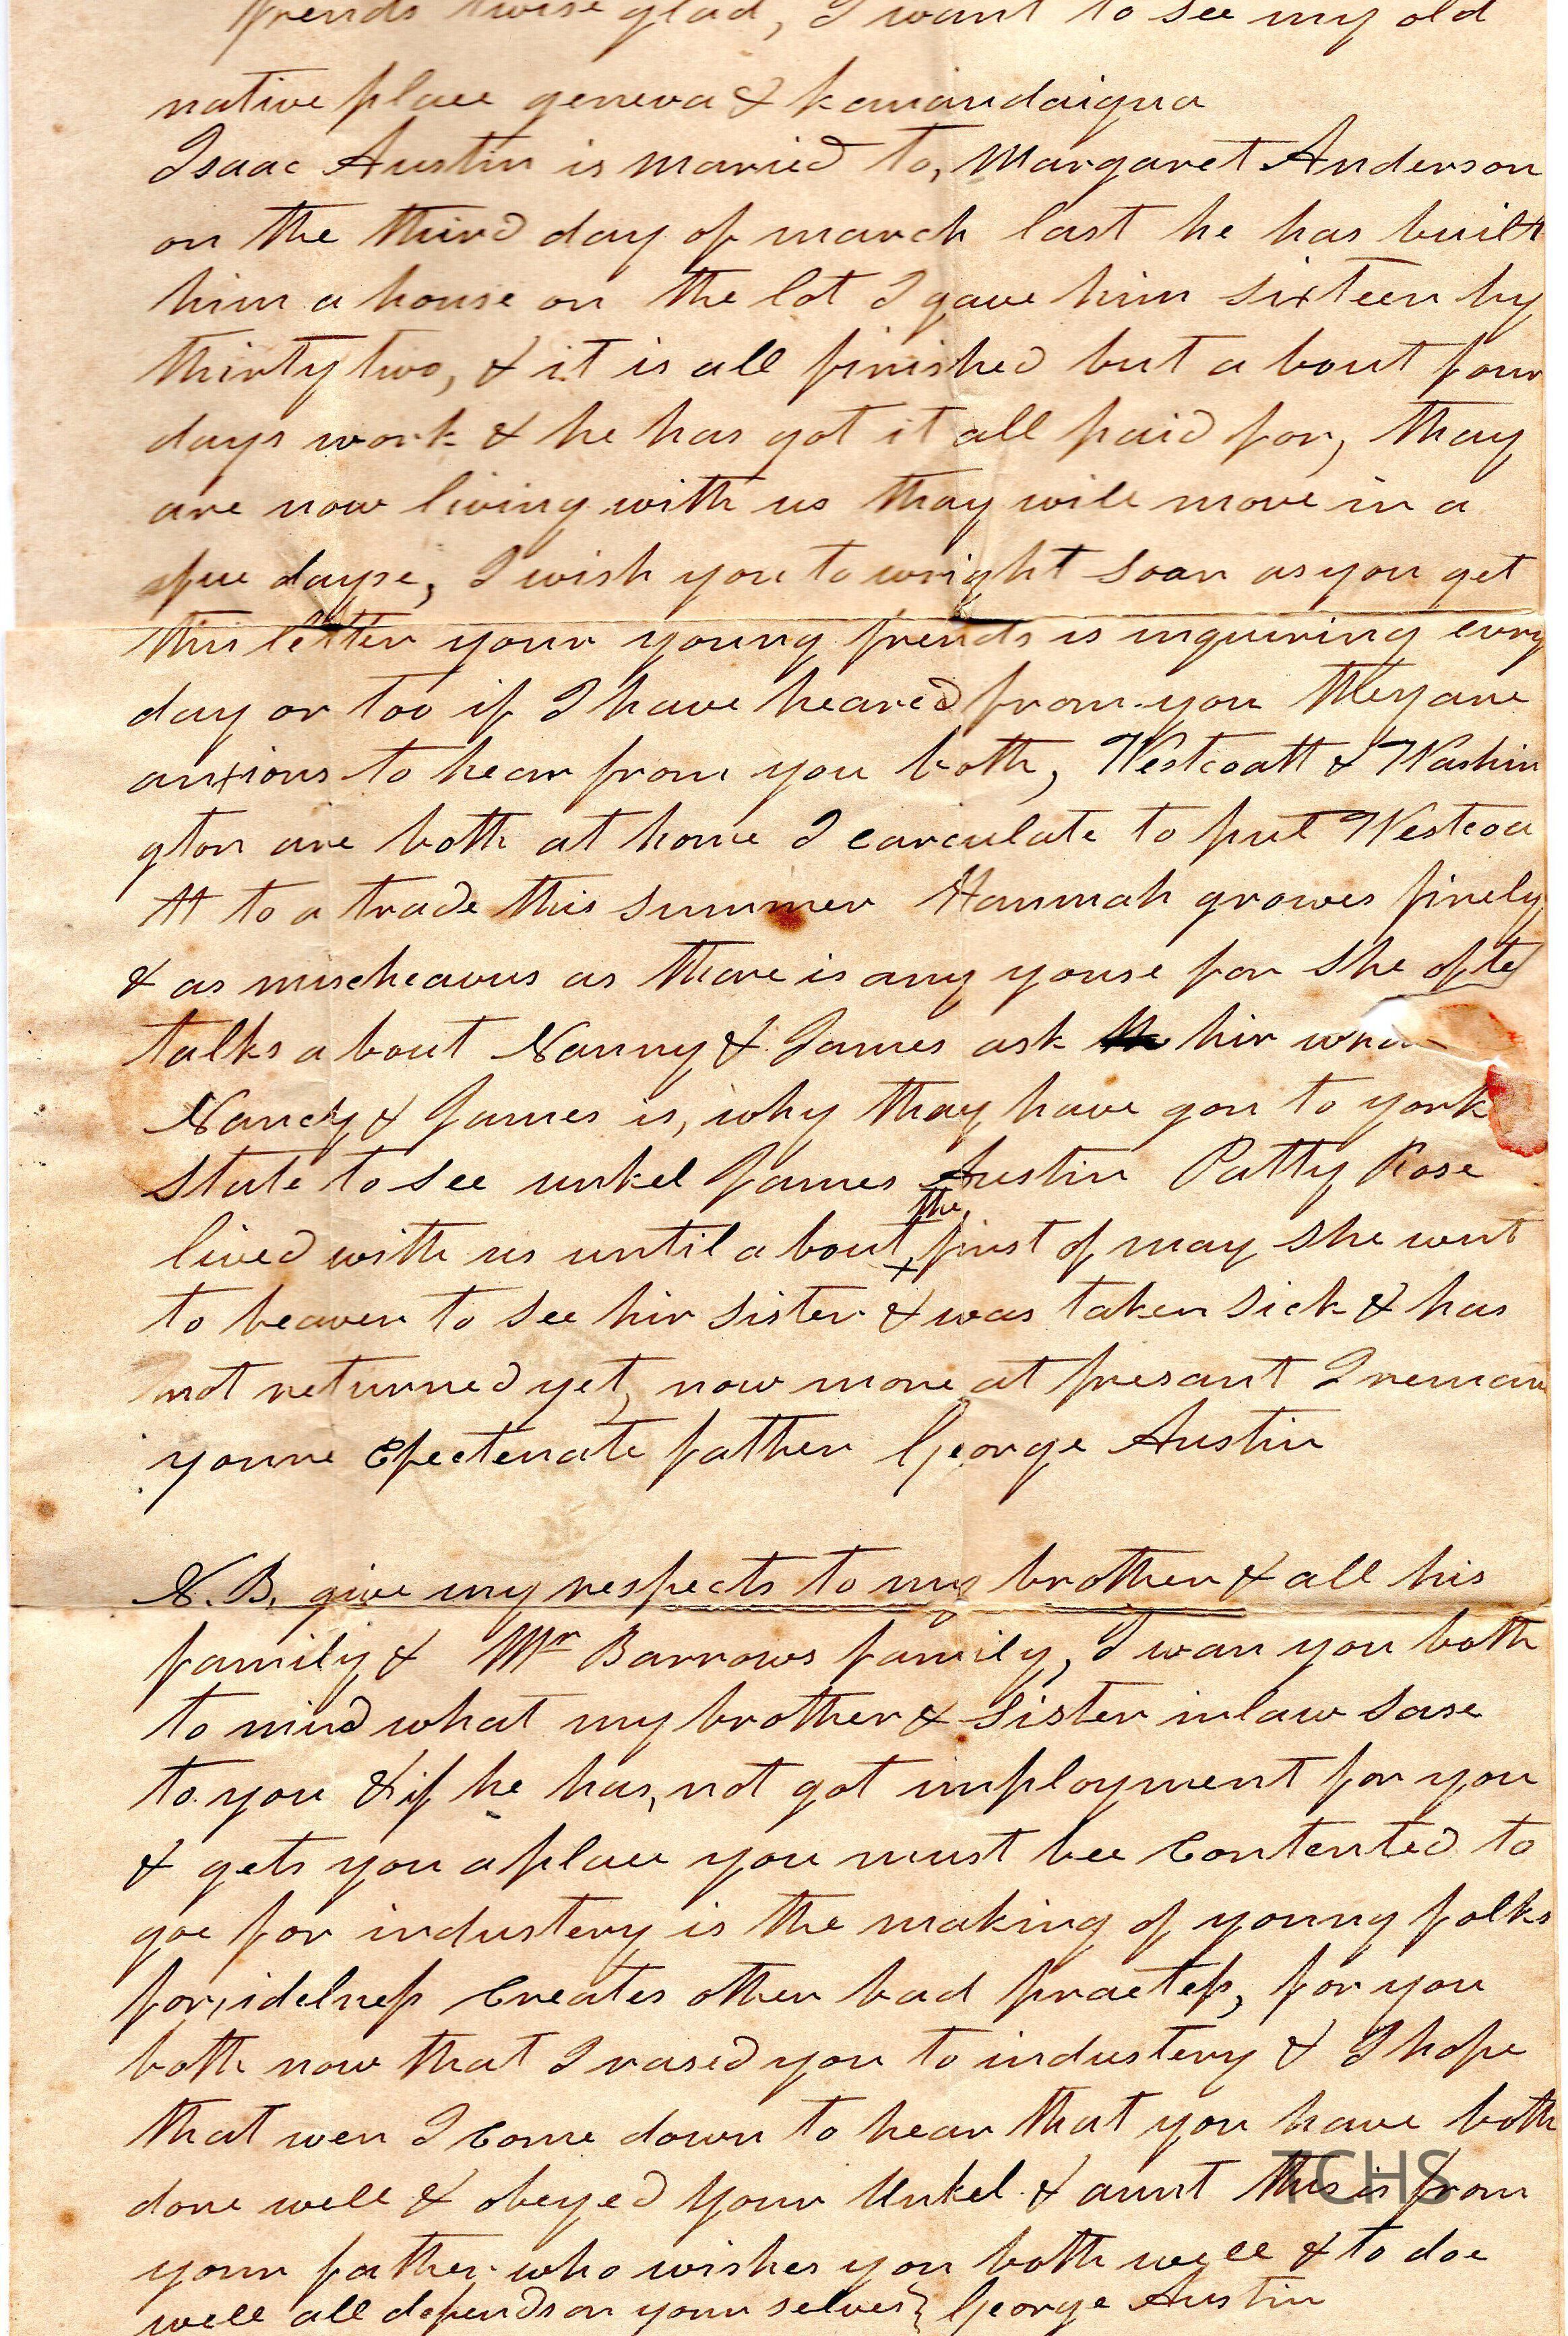 frends twise glad, I want to see my old
native place geneva & kanandaigua
Isaac Austin is maried to, Margaret Anderson
on the third day of march last he has built
him a house on the lot I gave him sixteen by
thirty two, & it is all finished but a bout four
days work & he has got it all paid for, thay
are now living with us thay will move in a
fue dayse, I wish you to wright soon as you get
this letter your young frends is inquiring evry
day or too if I have heared from you They are
anxious to hear from you both, Westcoatt & Washin
gton are both at home I carculate to put Westcoa
tt to a trade this summer Hannah growes finely
& as mischeavus as thare is any youse for she ofte
talks a bout Nanny & James ask hir
Nancy & James is, why thay have gon to york
state to see unkel James Austin Patty Rose
lived with us until a bout the first of may she went
to beaver to see hir sister & was taken sick & has
not returned yet, now more at presant I remain
youre Efectenate father George Austin
N.B. give my respects to my brother & all his
family & Mr Barrows family, I wan you both
to mind what my brother & sister inlaw sase
to you & if he has, not got imployment for you
& gets you a place you must bee Contented to
goe for industery is the making of young folks
for, idelness Creates other bad practess, for you
both now that I rased you to industery & I hope
that wen I Come down to hear that you have both
done well & obeyed your Unkel & aunt this is from
your father who wishes you both well & to doe
well all depends on your selves} George Austin
TCHS